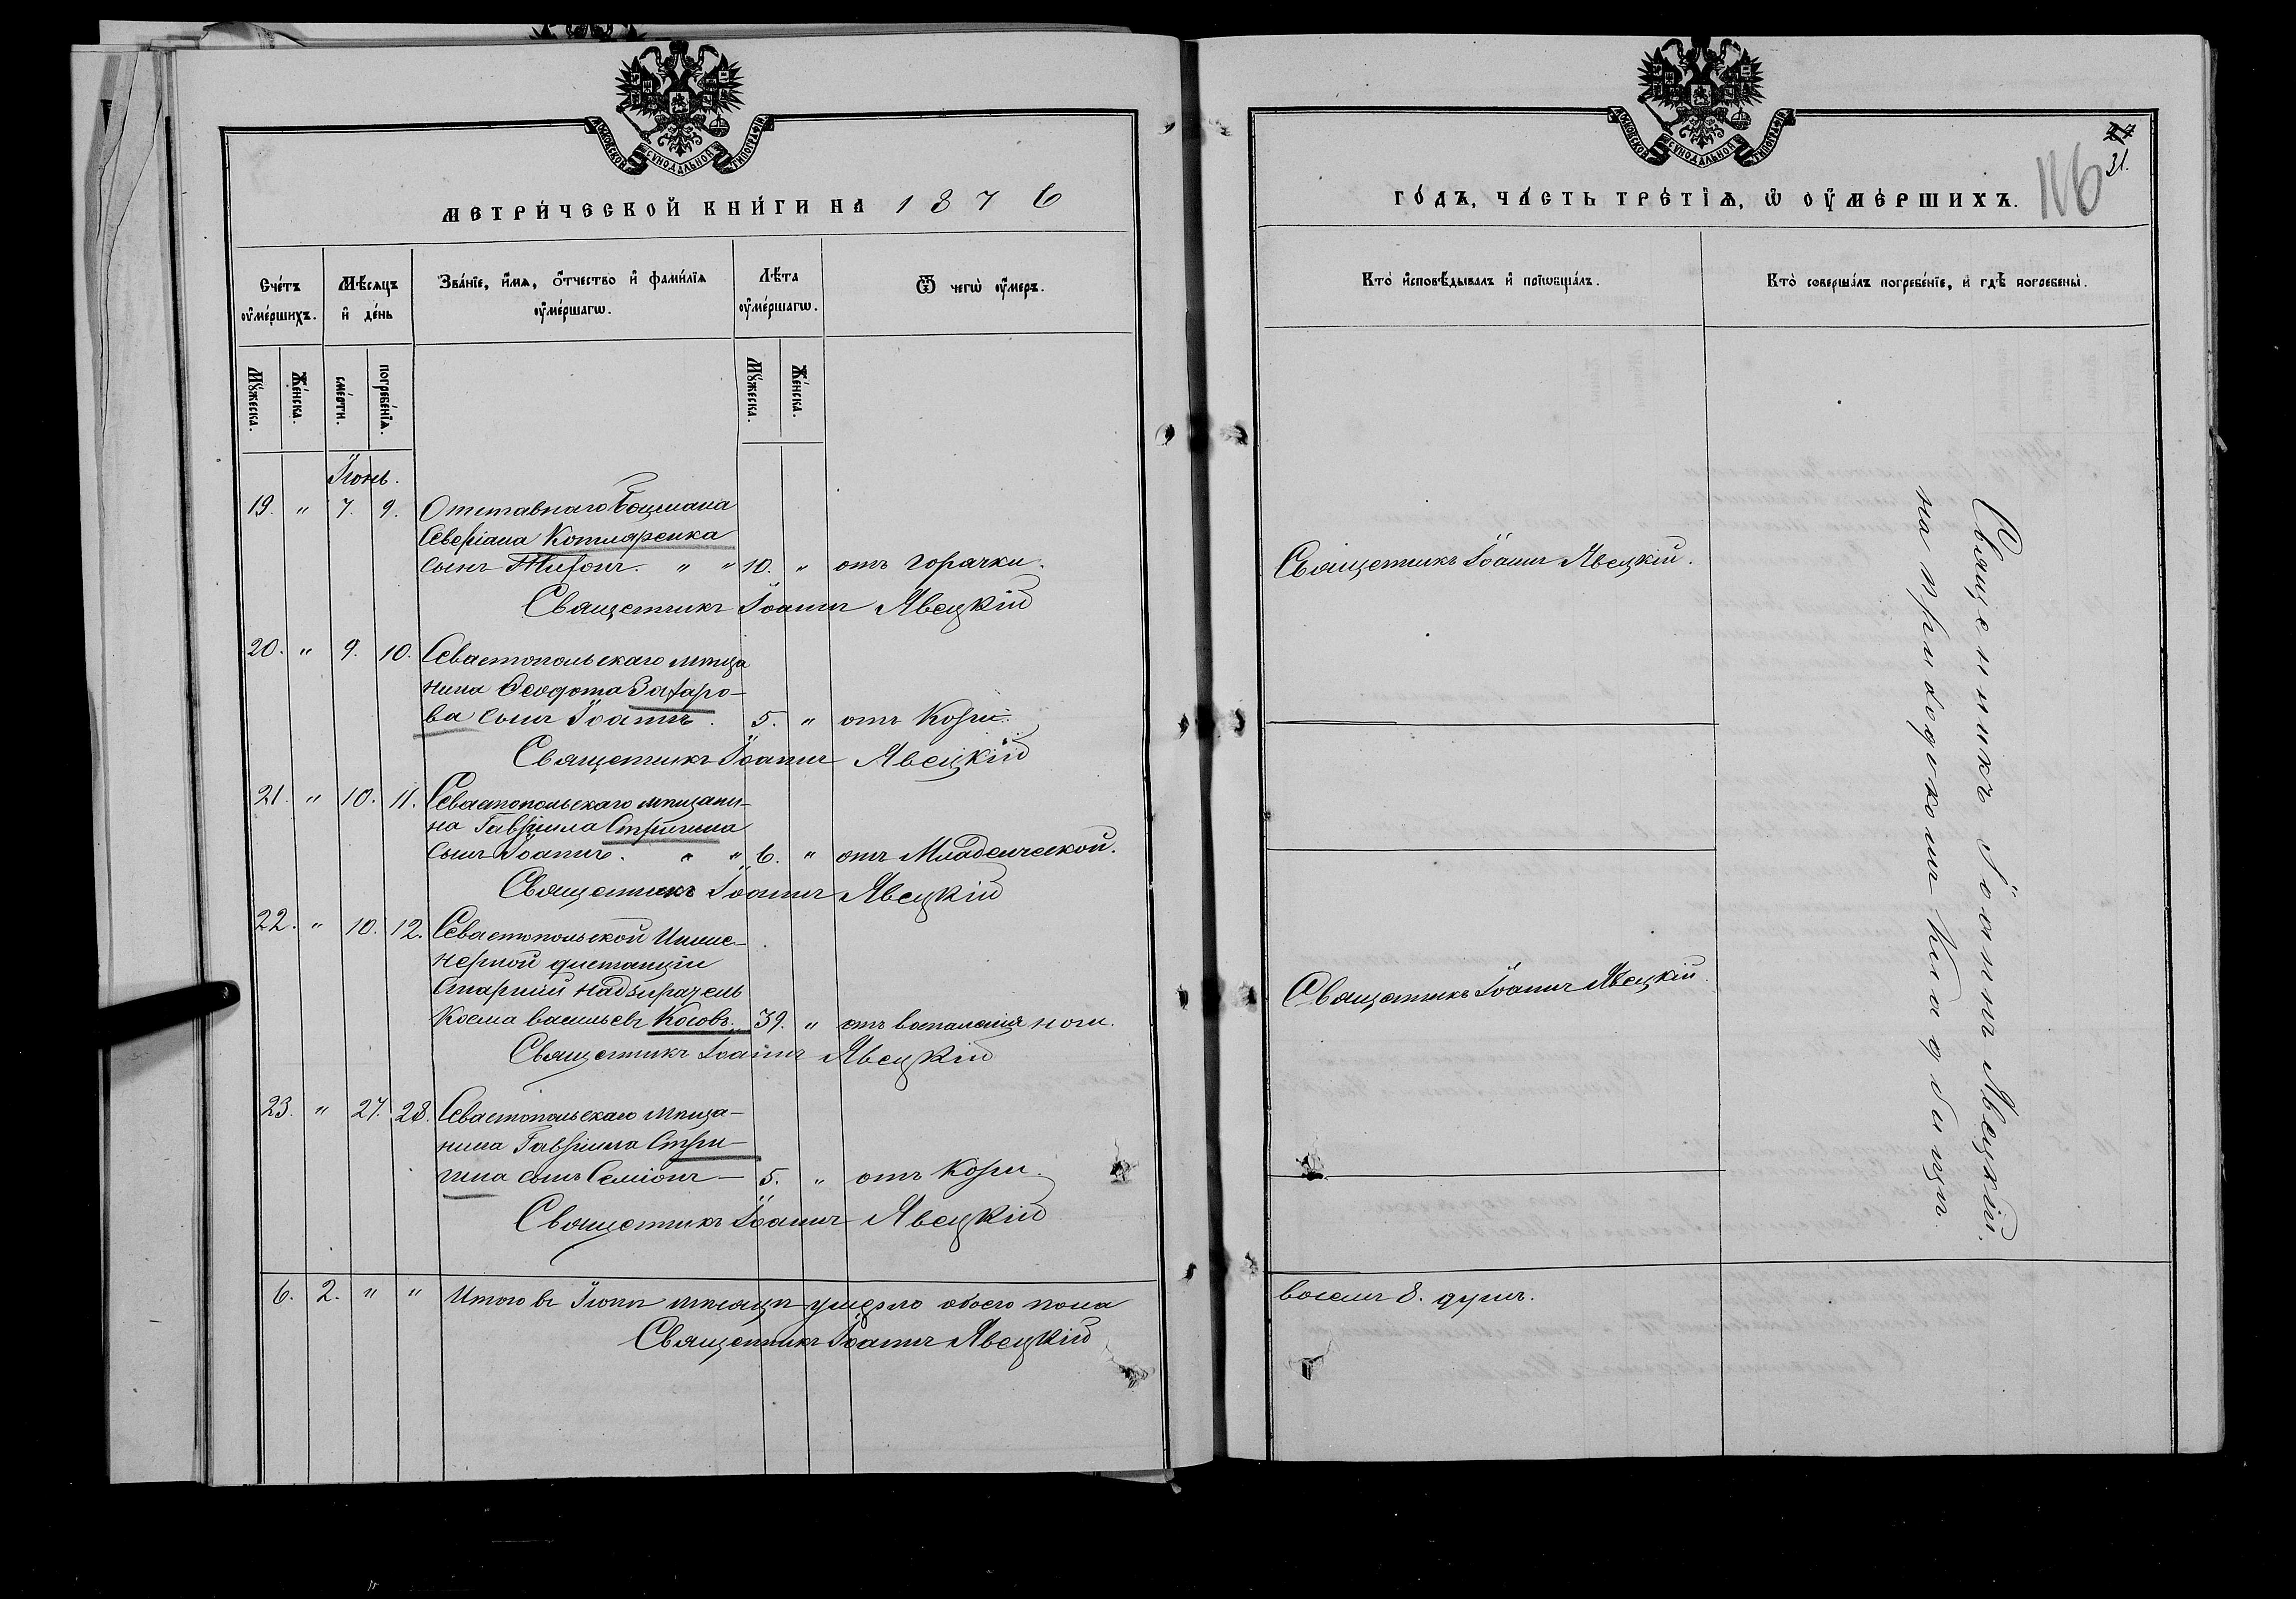 МОСКОВСКОЙ СѴНОДАЛЬНОЙ ТИПОГРАФІИ
МЕТРИ́ЧЕСКОЙ КНИ́ГИ НА 1876
Сче́тъ оу҆ме́ршихъ.
Мѣ́сяцъ и҆ де́нь
Зва́нїе, и҆́мѧ, ѻ҆́тчество и҆ фами́лїѧ оу҆ме́ршагѡ.
Лѣ́та оу҆ме́ршагѡ.
Ѿ чегѡ̀ оу҆́меръ.
Мꙋ́жеска.
Же́нска.
сме́рти.
погребе́нїѧ.
Мꙋ́жеска.
Же́нска.
Іюнь.
19. " 7. 9. Отставнаго Боцмана
Северіана Котляренка
сынъ Тихонъ. " " 10. " отъ горячки.
Священникъ Іоаннъ Явецкій
20. " 9. 10. Севастопольскаго мѣща
нина Ѳеодота Захаро-
ва сынъ Іоаннъ. 5. " отъ Кори.
Священникъ Іоаннъ Явецкій
21. " 10. 11. Севастопольскаго мѣщани-
на Гавріила Стригина
сынъ Іоаннъ. " " 6. " отъ Младенческой.
Священникъ Іоаннъ Явецкій
22. " 10. 12. Севастопольской Инже-
нерной дистанціи
Старшій надзиратель
Косма Васильевъ Косовъ. 39. " отъ воспаленія ноги.
Священникъ Іоаннъ Явецкій
23. " 27. 28. Севастопольскаго мѣща-
нина Гавріила Стри-
гина сынъ Семіонъ - 5. " отъ Кори.
Священникъ Іоаннъ Явецкій
6. 2. " " Итого въ Іюнѣ мѣсяцѣ умерло обоего пола
Священникъ Іоаннъ Явецкій
МОСКОВСКОЙ СѴНОДАЛЬНОЙ ТИПОГРАФІИ
31.
116
ГО́ДЪ, ЧА́СТЬ ТРЕ́ТЇѦ, Ѡ҆ ОУ҆МЕ́РШИХЪ.
Кто̀ и҆сповѣ́дывалъ и҆ прїѡбща́лъ.
Кто̀ соверша́лъ погребе́нїе, и҆ гдѣ̀ погребены̀.
Священникъ Іоаннъ Явецкій.
Священникъ Іоаннъ Явецкій.
восемь 8. душъ.
Священникъ Іоаннъ Явецкій.
на приходскомъ Кладбищѣ.